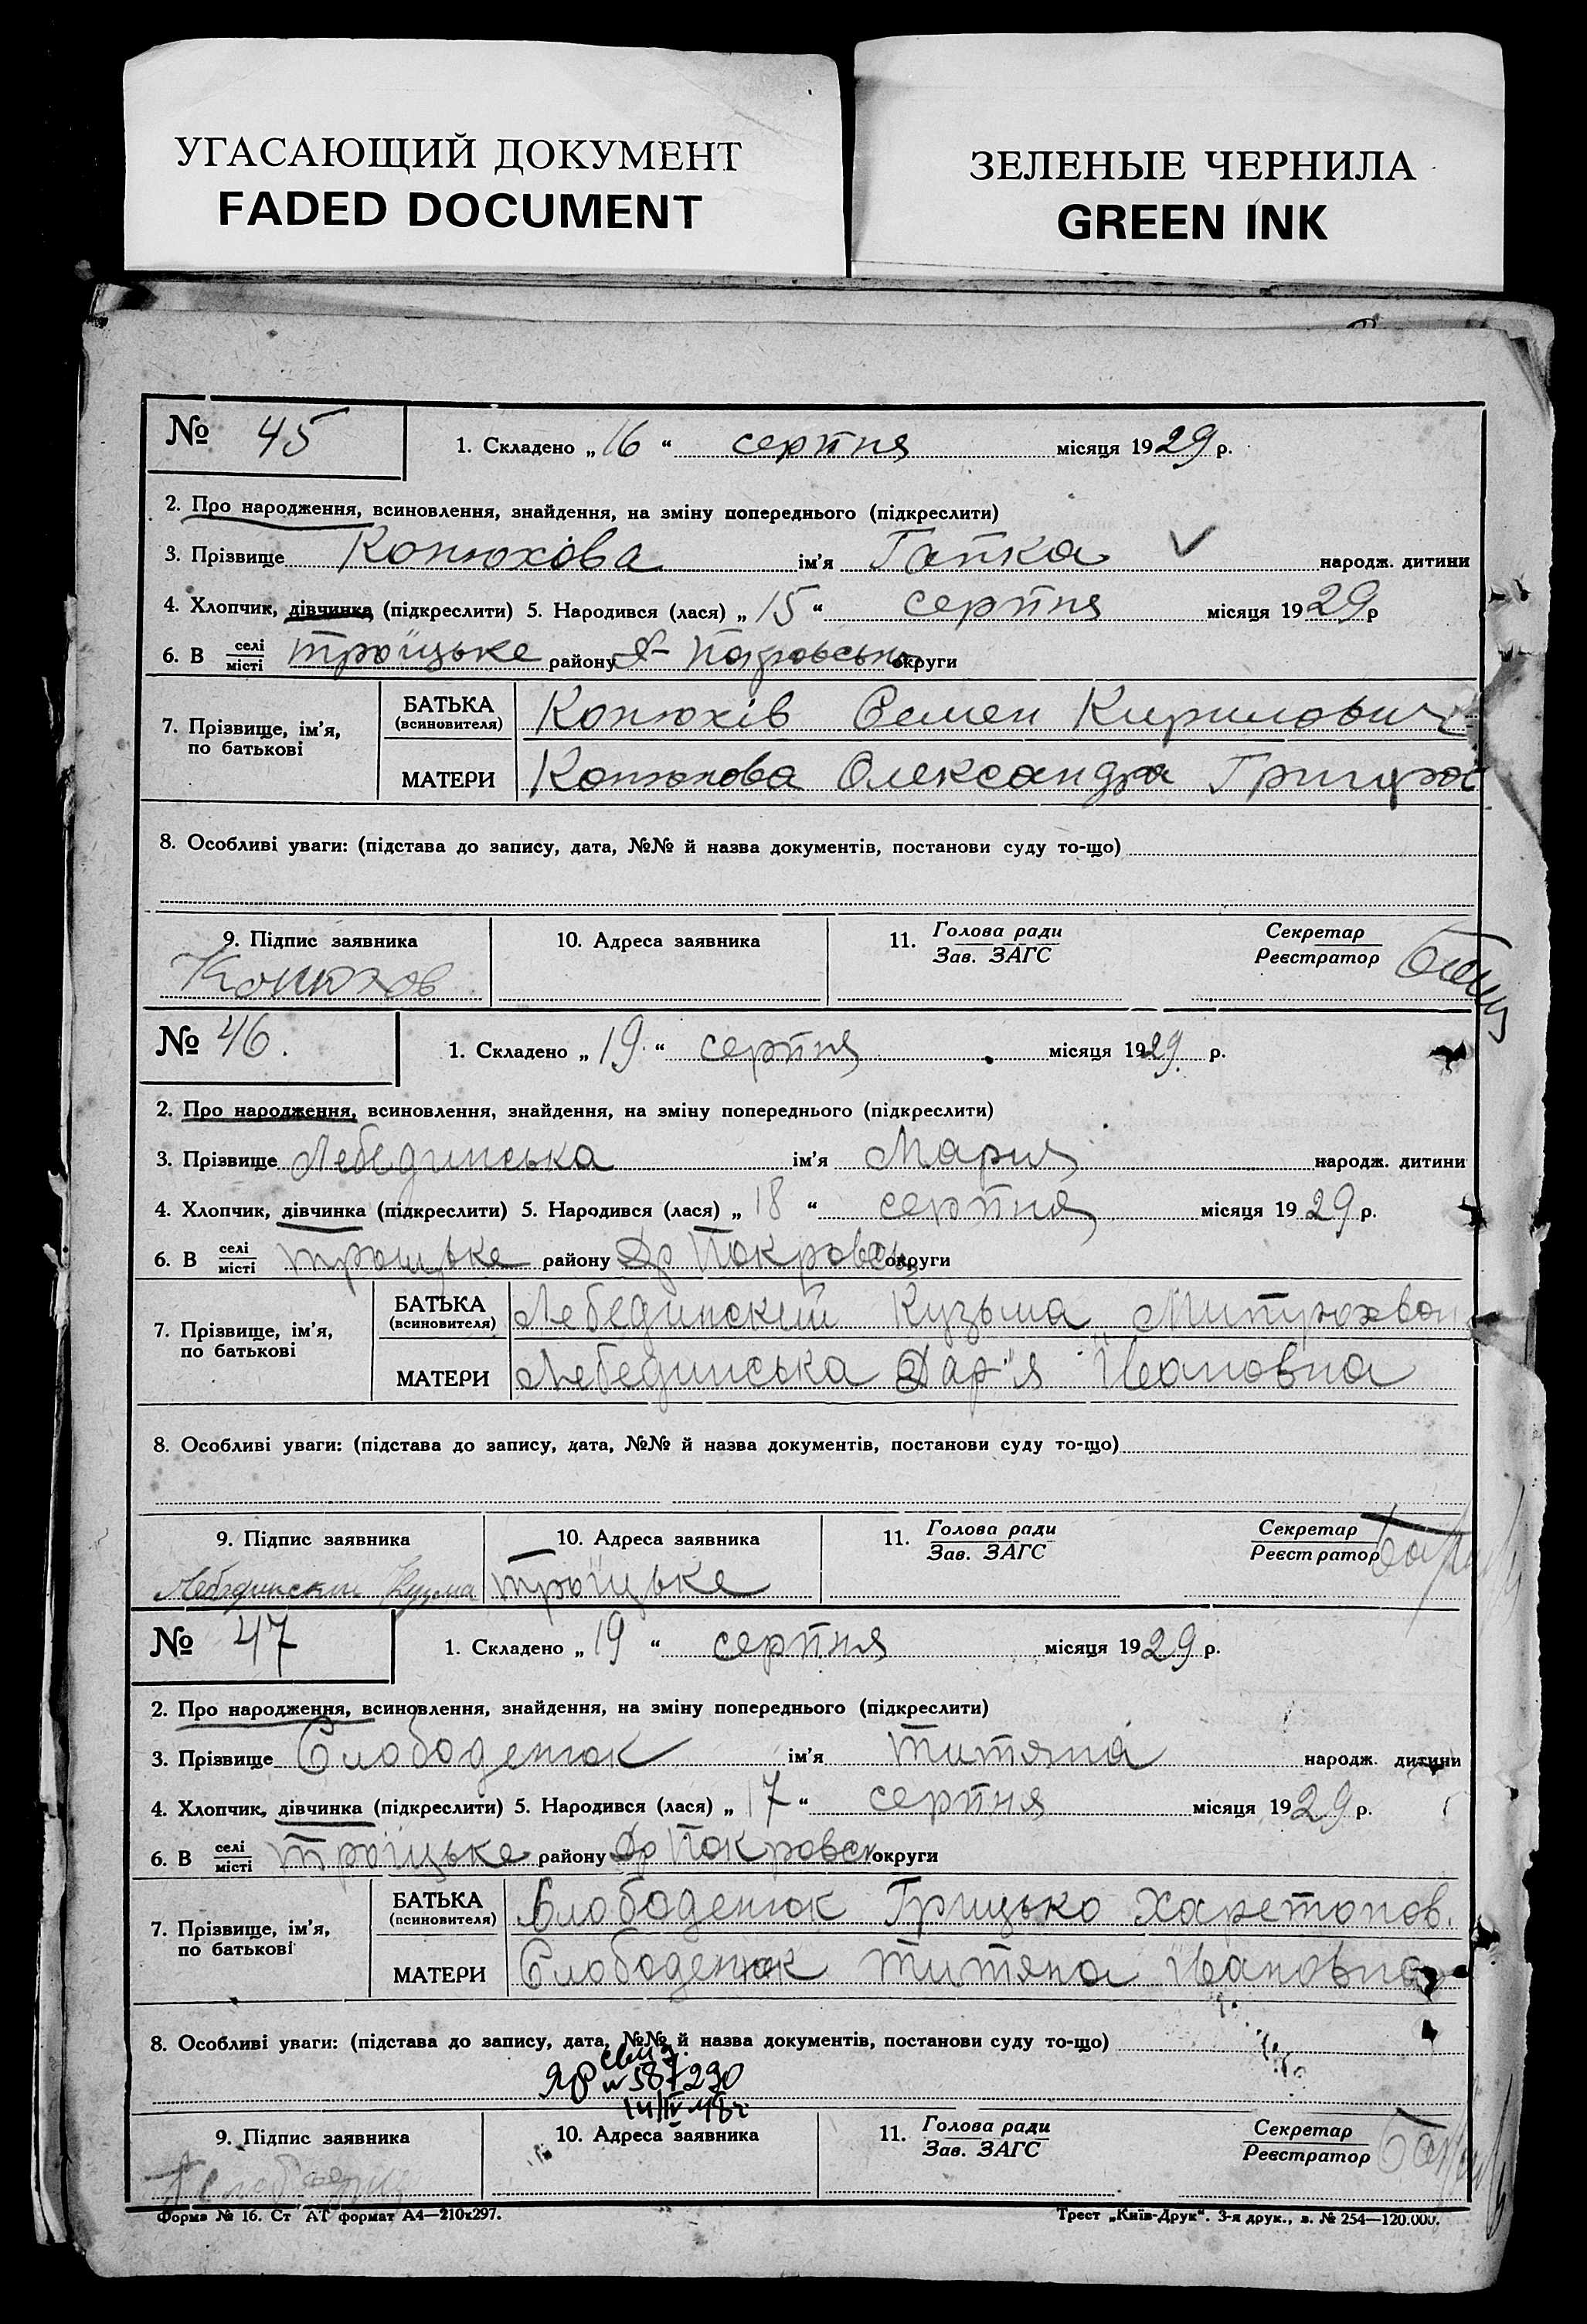 УГАСАЮЩИЙ ДОКУМЕНТ
FADED DOCUMENT
ЗЕЛЕНЫЕ ЧЕРНИЛА
GREEN INK
№ 45
1. Складено „16“ серпня місяця 1929 р.
2. Про народження, всиновлення, знайдення, на зміну попереднього (підкреслити)
3. Прізвище Конюхова ім'я Гапка народж. дитини
4. Хлопчик, дівчинка (підкреслити) 5. Народився (лася) „15“ серпня місяця 1929 р
6. В селі/місті троїцьке району округи
7. Прізвище, ім'я, по батькові
БАТЬКА (всиновителя) Конюхів Семен Кирилович
МАТЕРИ Конюхова Олександра
8. Особливі уваги: (підстава до запису, дата, №№ й назва документів, постанови суду то-що)
9. Підпис заявника 10. Адреса заявника 11. Голова ради/Зав. ЗАГС Секретар/Реєстратор
Конюхов
№ 46.
1. Складено „19“ серпня місяця 1929. р.
2. Про народження, всиновлення, знайдення, на зміну попереднього (підкреслити)
3. Прізвище Лебединська ім'я Мария народж. дитини
4. Хлопчик, дівчинка (підкреслити) 5. Народився (лася) „18“ серпня місяця 1929 р.
6. В селі/місті троцьке району Др Покровськ округи
7. Прізвище, ім'я, по батькові
БАТЬКА (всиновителя) Лебединский Кузьма
МАТЕРИ Лебединська Дар'я Івановна
8. Особливі уваги: (підстава до запису, дата, №№ й назва документів, постанови суду то-що)
9. Підпис заявника 10. Адреса заявника 11. Голова ради/Зав. ЗАГС Секретар/Реєстратор
Лебединский Кузма троїцьке
№ 47
1. Складено „19“ серпня місяця 1929 р.
2. Про народження, всиновлення, знайдення, на зміну попереднього (підкреслити)
3. Прізвище Слободенюк ім'я титяна народж. дитини
4. Хлопчик, дівчинка (підкреслити) 5. Народився (лася) „17“ серпня місяця 1929 р.
6. В селі/місті троїцьке району Др Покровськ округи
7. Прізвище, ім'я, по батькові
БАТЬКА (всиновителя) Слободенюк Грицько Харетонов.
МАТЕРИ Слободенюк титяна Івановна
8. Особливі уваги: (підстава до запису, дата, №№ й назва документів, постанови суду то-що)
ЯР № 587290
9. Підпис заявника 10. Адреса заявника 11. Голова ради/Зав. ЗАГС Секретар/Реєстратор
Форма № 16. Ст АТ формат А4—210х297.
Трест „Київ-Друк“. 3-я друк., з. № 254—120.000.